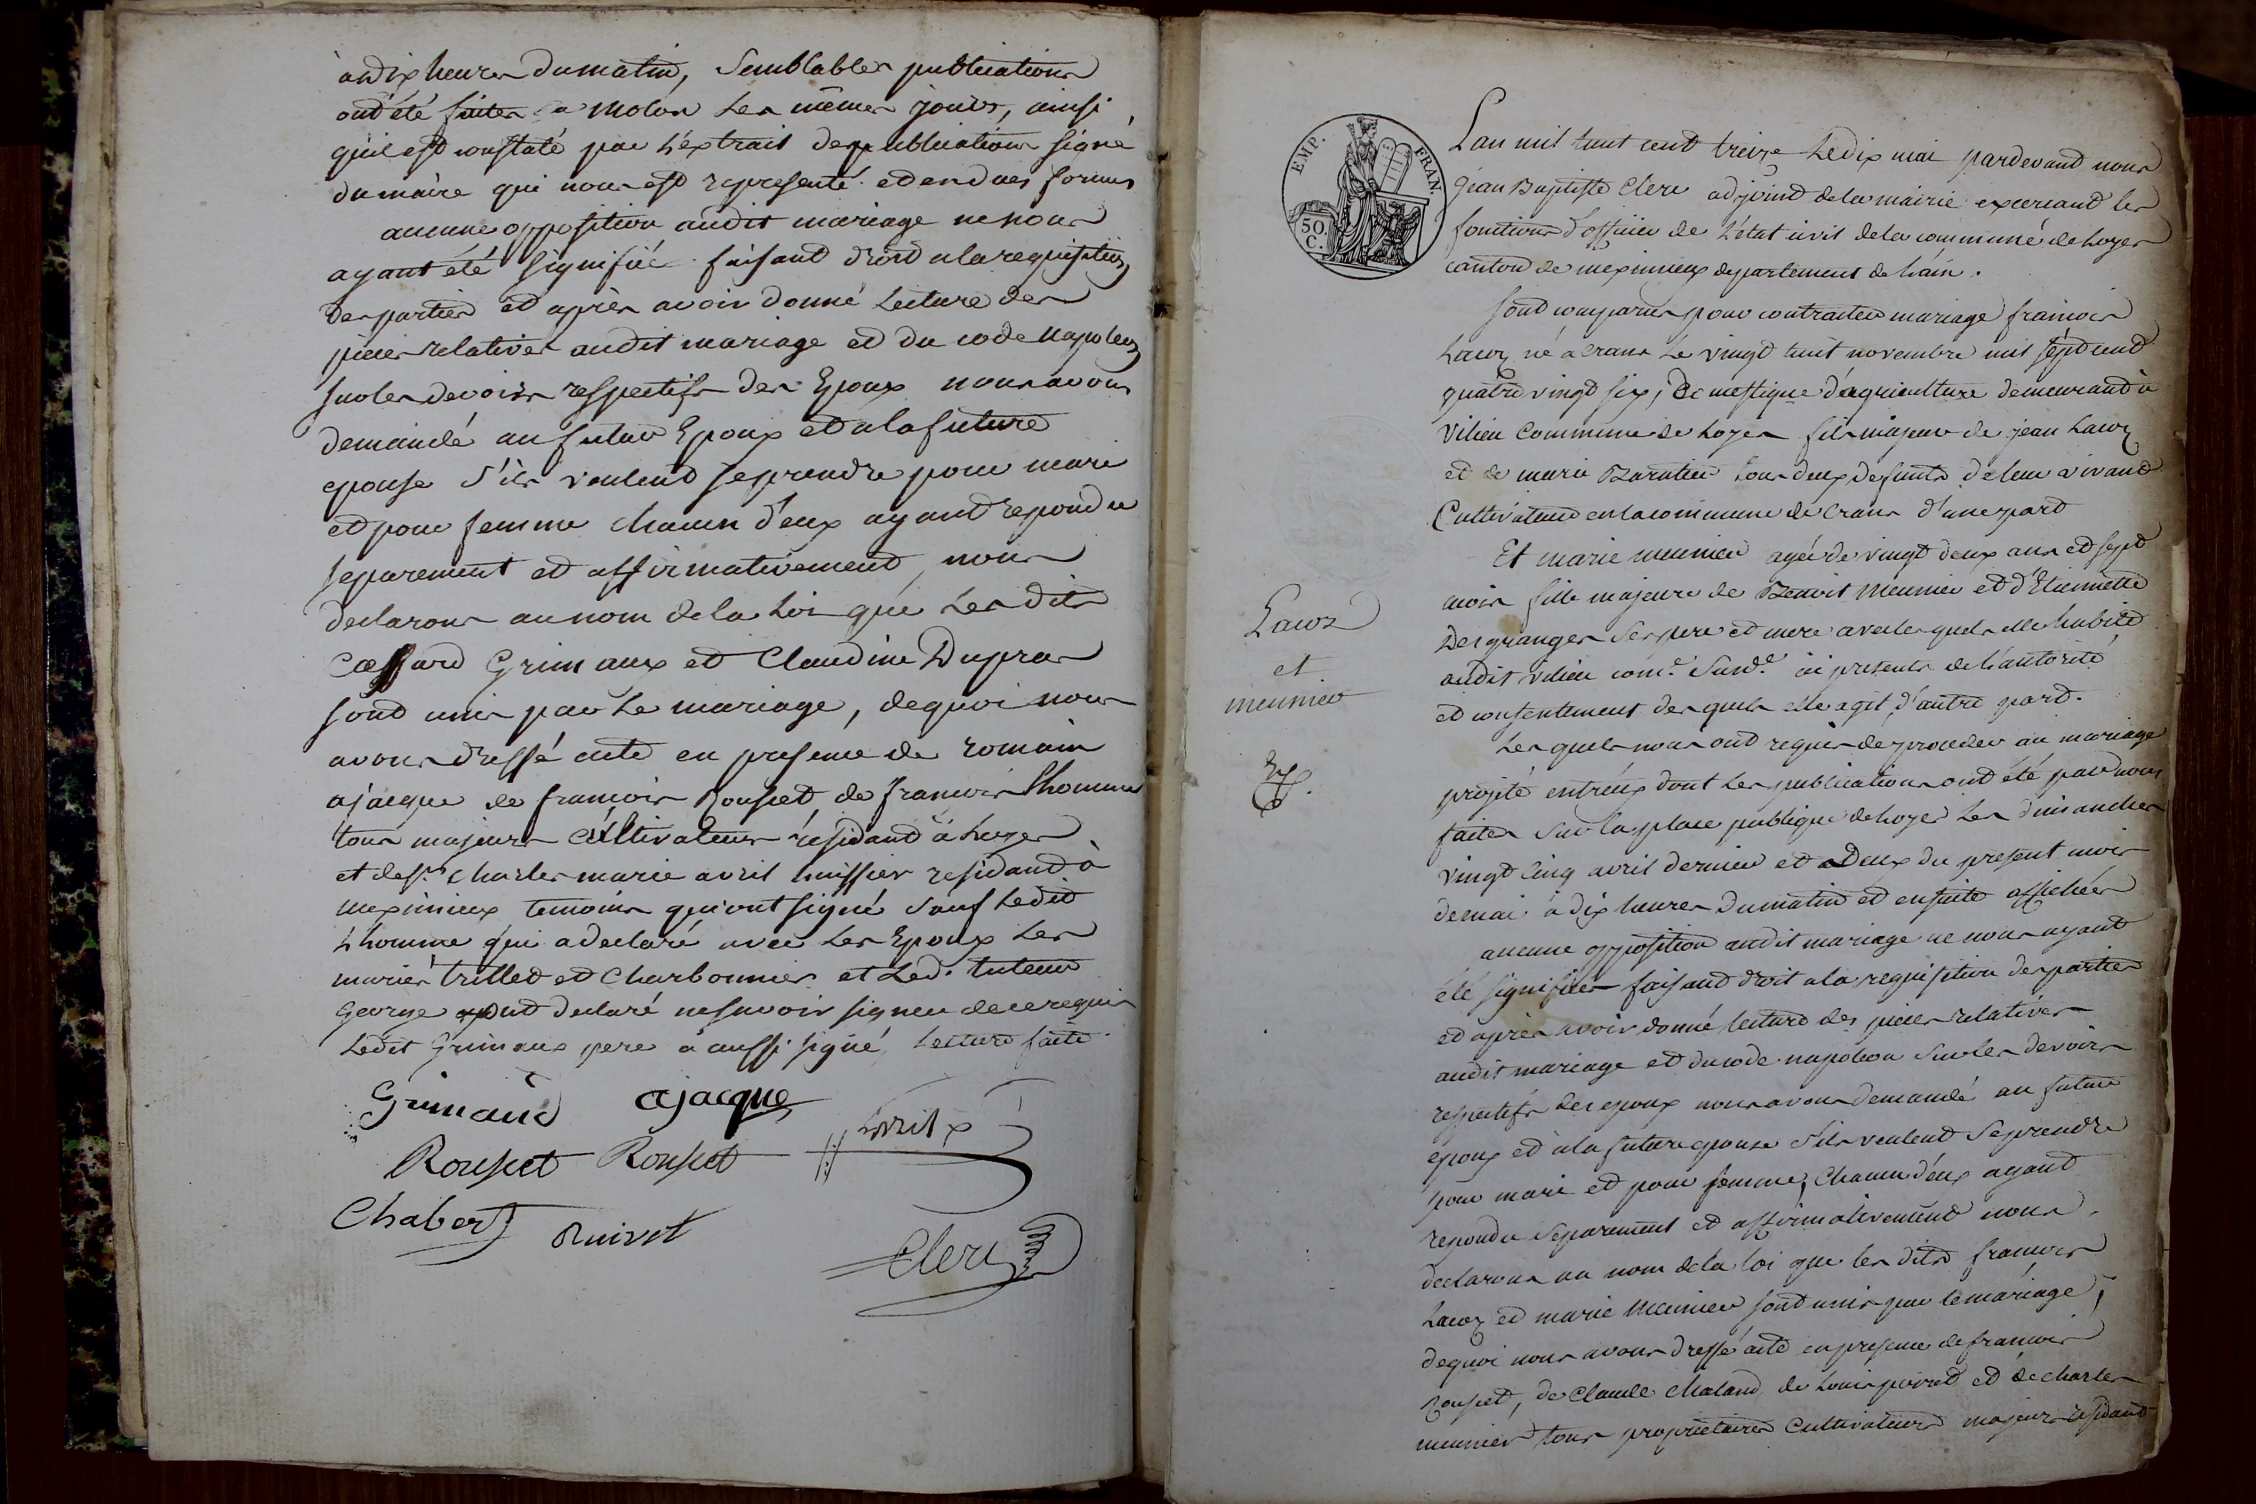 à dix heures du matin, Semblables publications
ont été faites a Molon Les mêmes jours, ainsi
qu'il est constaté par L'extrait de publications signé
du maire qui nous est representé et en dues formes
aucune opposition audit mariage ne nous
ayant été signifiée faisant droit a la requisition
des parties et après avoir donné Lecture des
pieces relatives audit mariage et du code Napoleon
sur les devoirs respectifs des Epoux nous avons
demandé au futur Epoux et a la future
epouse s'ils veulent se prendre pour mari
et pour femme chacun d'eux ayant repondu
separement et affirmativement, nous
declarons au nom de la Loi que Les dits
Grimaux et Claudine Dupras
sont unis par Le mariage, de quoi nous
avons dressé acte en presence de romain
ajacque de francois Rousset, de francois Lhomme
tous majeurs Cultivateurs résidant à Loyes
et de Sr. Charles marie avril huissier residant à
meximieux temoins qui ont signé Sauf Ledit
Lhomme qui a declaré avec Les Epoux Les
mariés trillet et Charbonnier et Led. tuteur
George ont declaré ne savoir signer de ce requis
Ledit Grimaux pere a aussi signé, Lecture faite.
Grimaud ajacque
Rousset Rousset avril
Chabert Ruivet
Clerc
EMP. FRAN.
50. C.
L'an mil huit cent treize Le dix mai pardevant nous
Jean Baptiste Clerc adjoint de la mairie exercant les
fonctions d'officier de L'état civil de la commune de Loyes
canton de meximieux departement de L'ain.
Sont comparus pour contracter mariage francois
Laroz né a crans Le vingt huit novembre mil sept cent
quatre vingt six, Domestique d'agriculture demeurant à
Vilieu Commune de Loyes fils majeur de jean Laroz
et de marie Baratier tous deux defunts de leur vivant
Cultivateurs en la commune de Crans d'une part
Et marie meunier agée de vingt deux ans et sept
mois fille majeure de Benoit Meunier et d'Etiennette
Desgranges Ses pere et mere avec les quels elle habite
audit vilieu com.e Sus d.e ici presents de L'autorité
et consentement des quels elle agit, d'autre part.
Les quels nous ont requis de proceder au mariage
projeté entr'eux dont les publications ont été par nous
faites Sur la place publique de Loyes Les dimanches
vingt cinq avril dernier et Deux du present mois
de mai à dix heures Du matin et ensuite affichées
aucune opposition audit mariage ne nous ayant
été signifiée faisant droit a la requisition des parties
et après avoir donné lecture des pieces relatives
audit mariage et du code napoleon Sur les devoirs
respectifs des epoux nous avons demandé au futur
epoux et a la future epouse s'ils veulent Se prendre
pour mari et pour femme, Chacun d'eux ayant
repondu Separement et affirmativement nous
declarons au nom de la loi que les dits francois
Laroz et marie Meunier sont unis par le mariage,
de quoi nous avons dressé acte en presence de francois
Rousset, de Claude Chaland, de Louis poirret et de charles
meunier tous proprietaires Cultivateurs majeurs residant
Laroz
et
meunier